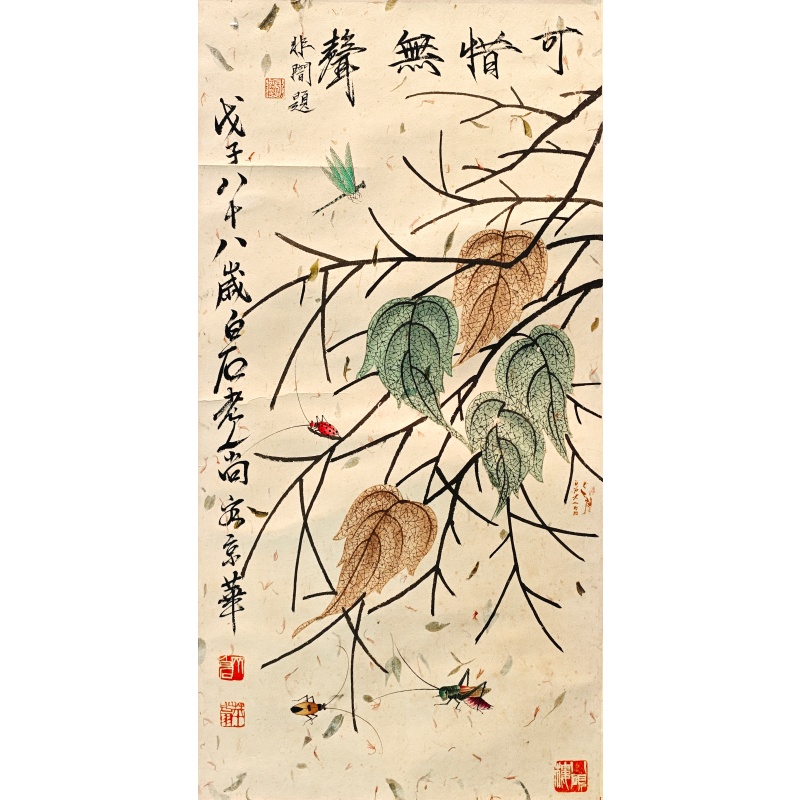 可惜無聲
非闇題
戊子八十八歲白石老人尚客京華